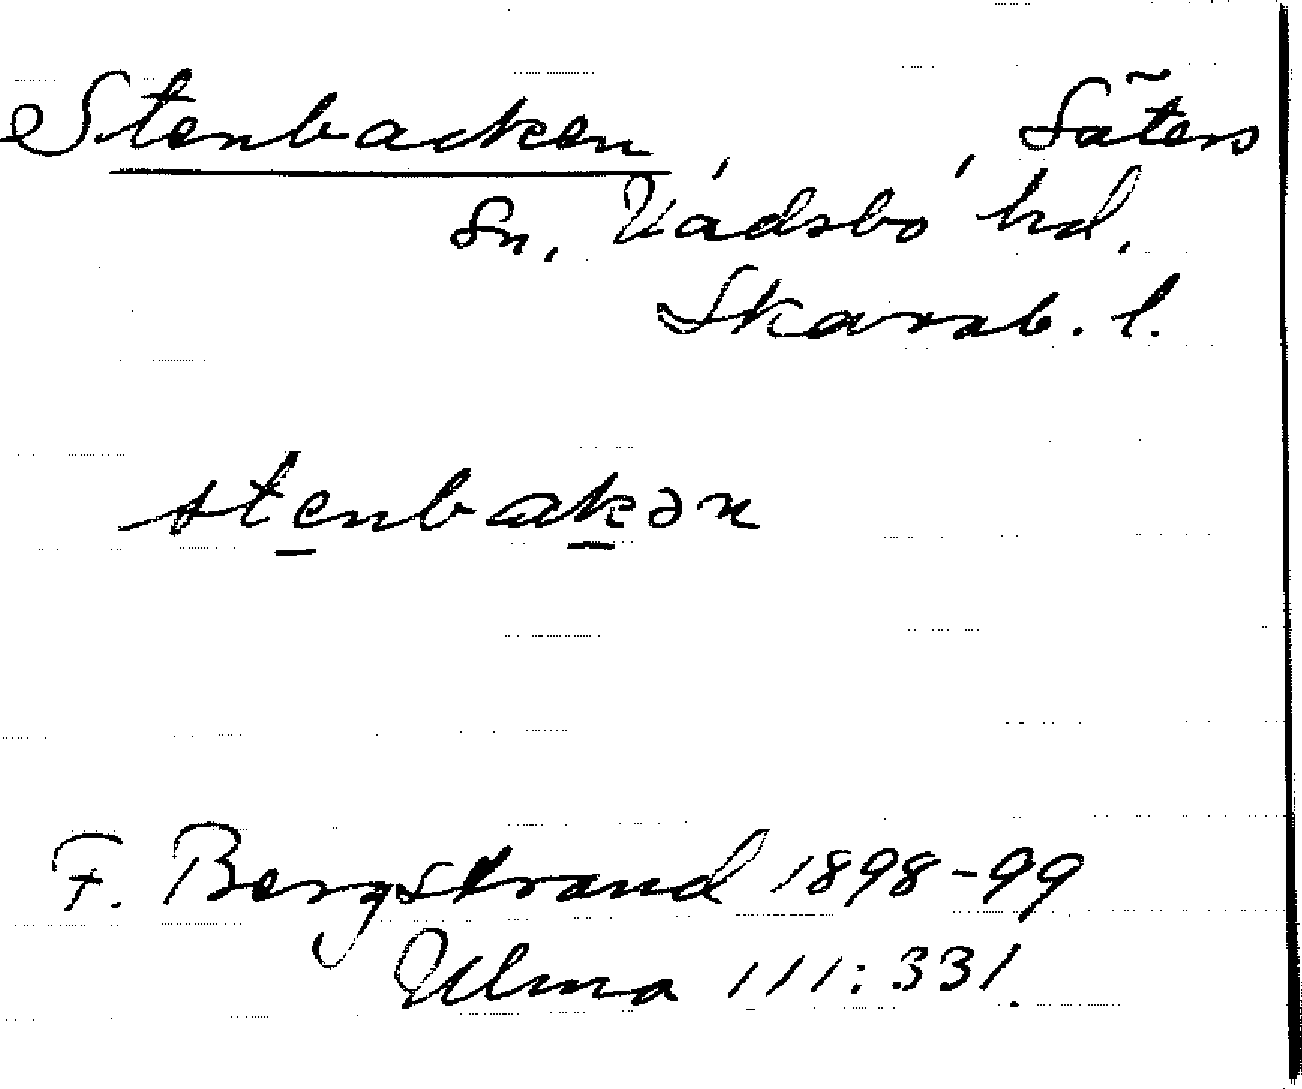 Stenbacken, , Säters
Sn. Vadsbo hd.
Skarab. l.
stenbakən
F. Bergstrand 1898-99
Ulma 111:331.